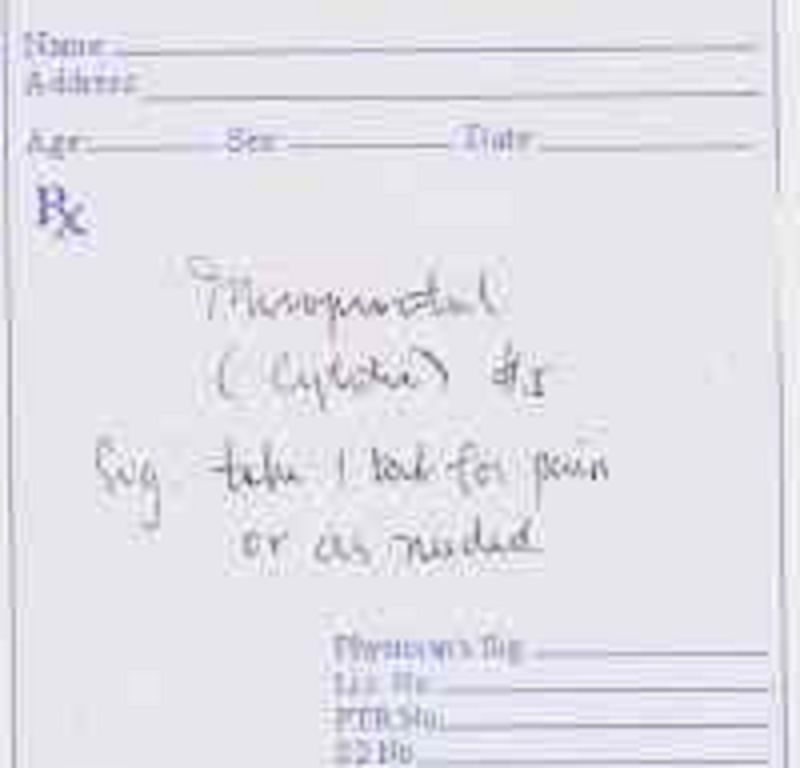 Name
Address
Age Sex Date
Rx
Misoprostol
(Cytotec)
Sig. take 1 tab for pain
or as needed
Physician's Sig.
Lic. No.
PTR No.
S2 No.